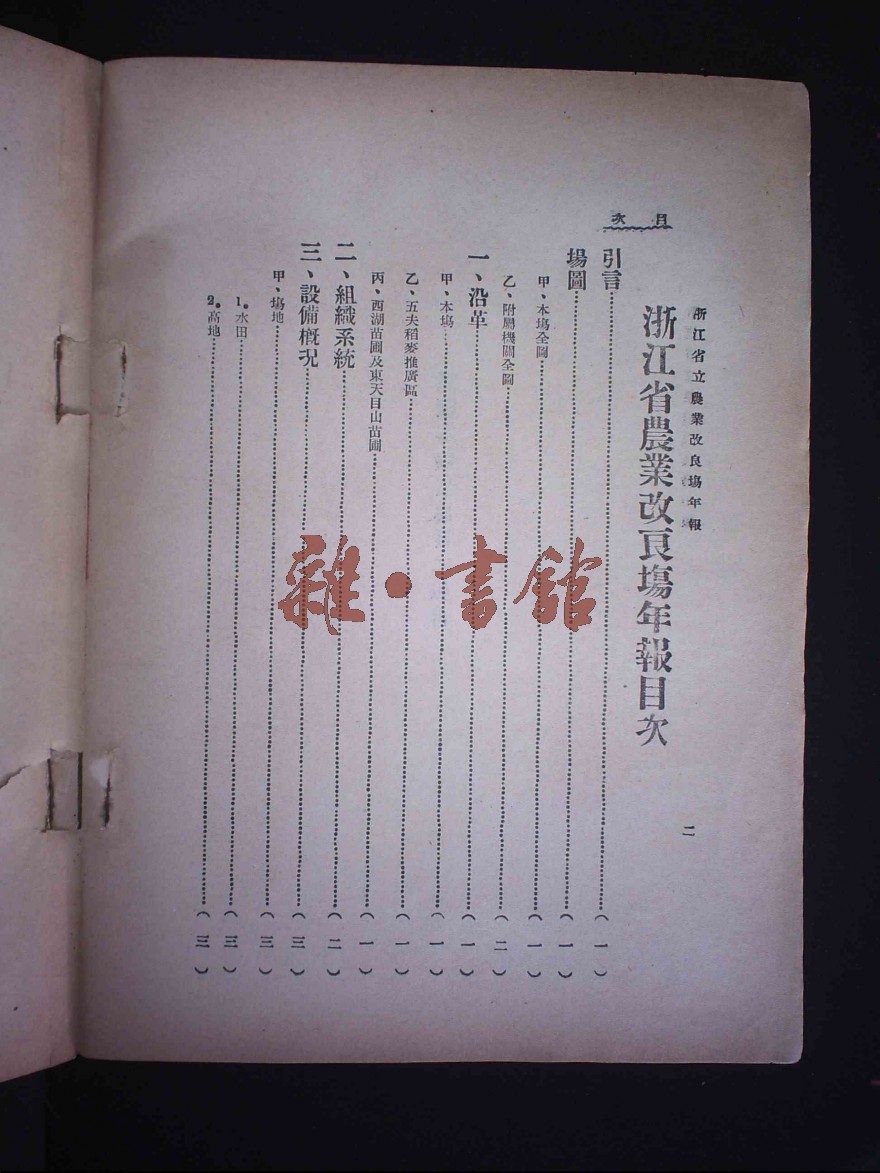 浙江省立農業改良塲年報
二
目次
浙江省農業改良塲年報目次
引言(一)
塲圖(一)
甲、本塲全圖(一)
乙、附屬機關全圖(二)
一、沿革(一)
甲、本塲(一)
乙、五夫稻麥推廣區(一)
丙、西湖苗圃及東天目山苗圃(一)
二、組織系統(二)
三、設備槪況(三)
甲、塲地(三)
1.水田(三)
2.高地(三)
雜·書館